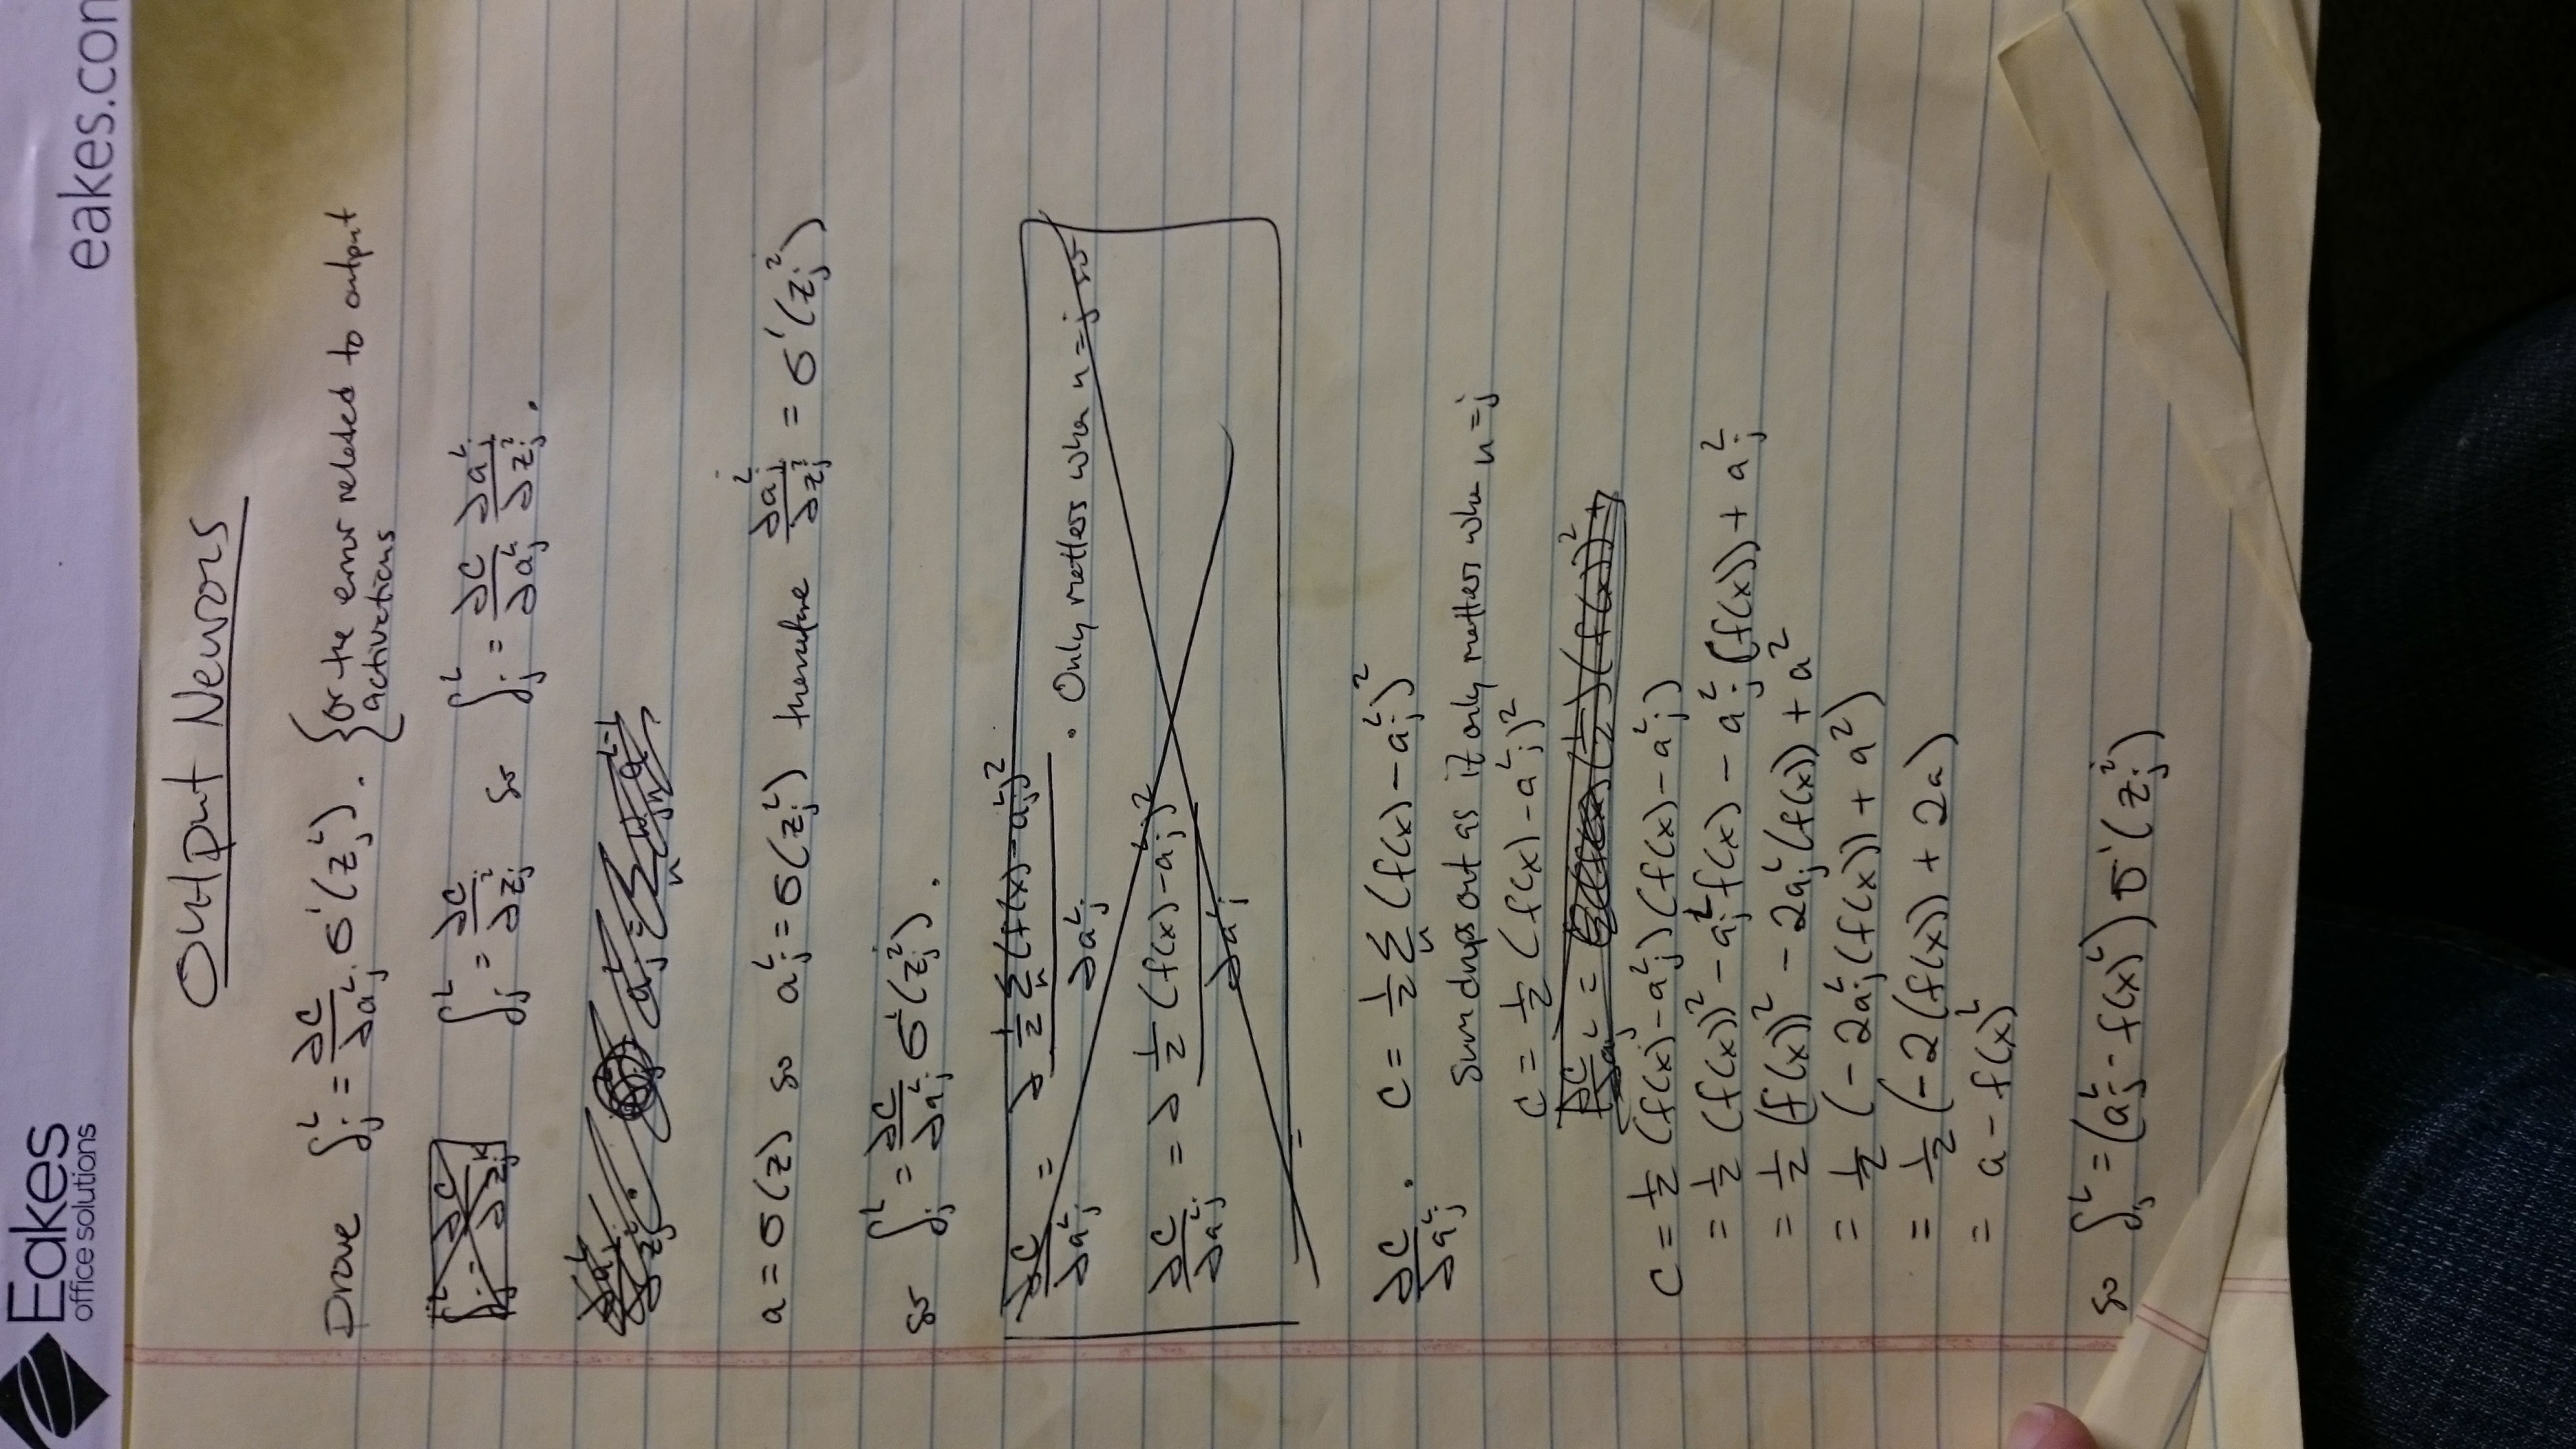 Eakes
office solutions
eakes.com
Output Neurons
Prove δ_j^L = ∂C/∂a_j^L σ'(z_j^L). {or the error related to output
activations
δ_j^L = ∂C/∂z_j^L so δ_j^L = ∂C/∂a_j^L ∂a_j^L/∂z_j^L.
a = σ(z) so a_j^L = σ(z_j^L) therefore ∂a_j^L/∂z_j^L = σ'(z_j^L)
so δ_j^L = ∂C/∂a_j^L σ'(z_j^L).
∂C/∂a_j^L = ∂ 1/2 Σ_n (f(x) - a_j^L)^2 / ∂a_j^L . Only matters when n = j so
∂C/∂a_j^L = ∂ 1/2 (f(x) - a_j^L)^2 / ∂a_j^L
=
∂C/∂a_j^L . C = 1/2 Σ_n (f(x) - a_j^L)^2
Sum drops out as it only matters when n = j
C = 1/2 (f(x) - a_j^L)^2
C = 1/2 (f(x) - a_j^L)(f(x) - a_j^L)
= 1/2 (f(x))^2 - a_j^L f(x) - a_j^L (f(x)) + a_j^2
= 1/2 (f(x))^2 - 2a_j^L (f(x)) + a^2
= 1/2 (-2a_j^L (f(x)) + a^2)
= 1/2 (-2(f(x)) + 2a)
= a - f(x)^L
so δ_j^L = (a_j^L - f(x)^L) σ'(z_j^L)